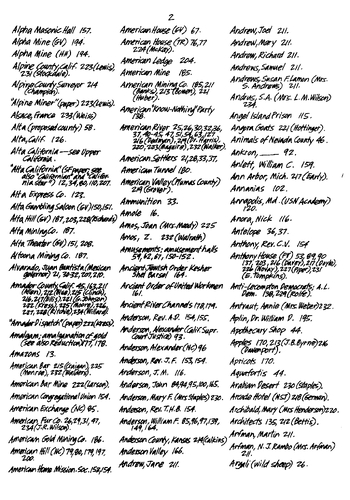 2
Alpha Masonic Hall 157.
Alpha Mine (GV) 194.
Alpha Mine (NA) 194.
Alpine County, Calif. 223 (Lewis),
231 (Stockdale).
Alpine County Surveyor 214
(Champion).
"Alpine Miner" (paper) 223 (Lewis).
Alsace, France 233 (Weiss)
Alta (proposed county) 58.
Alta, Calif. 126.
Alta California — see Upper
California.
Alta Express Co. 123.
Alta Gambling Saloon (GV) 150, 151.
Alta Hill (GV) 187, 203, 228 (Richards)
Alta Mining Co. 187.
Alta Theater (GV) 151, 208.
Altoona Mining Co. 187.
Alvarado, Juan Bautista (Mexican
governor) 21, 30, 32, 201, 210.
Amador County, Calif. 45, 163, 211
"Amador Dispatch" (paper) 222 (Lewis).
Amalgam; amalgamation of gold
(see also Reduction) 177, 178.
Amazons 13.
American Bar 215 (Knigan), 225
American Bar Mine 222 (Larson).
American Congregational Union 154.
American Exchange (NC) 95.
American Fur Co. 26, 29, 31, 47,
234 (J.R. Wilson).
American Gold Mining Co. 186.
American Hill (NC) 79, 80, 179, 197,
200.
American Home Mission Soc. 152, 154.
American House (GV) 67.
American House (TR) 76, 77
224 (McKay).
American Ledge 204.
American Mine 185.
American Mining Co. 185, 211
American "Know-Nothing" Party
138.
American River 25, 26, 30, 32, 36,
American Settlers 21, 28, 33, 37.
American Tunnel 180.
American Valley (Plumas County)
218 (Grigg).
Ammunition 33.
Amole 16.
Amos, Jean (Mrs. Meade) 225
Amos, Z. 232 (Walrath)
Amusements; amusement halls
59, 62, 67, 150-152.
Ancient Jewish Order Kesher
Shel Barzel 164.
Ancient Order of United Workmen
161.
Ancient River Channels 178, 179.
Anderson, Rev. A.D. 154, 155.
Anderson, Alexander (Calif. Supr.
Court Justice) 93.
Anderson, Alexander (NC) 96
Anderson, Rev. J.F. 153, 154.
Anderson, J.M. 116.
Anderson, John 84, 94, 95, 100, 165.
Anderson, Mary F. (Mrs. Staples) 230.
Anderson, Rev. T.H.B. 154.
Anderson, William F. 85, 96, 97, 139,
149, 164.
Anderson County, Kansas 214 (Calkins)
Anderson Valley 166.
Andrew, Jane 211.
Andrew, Joel 211.
Andrew, Mary 211.
Andrew, Richard 211.
Andrews, Samuel 211.
Andrews, Susan F. Lamon (Mrs.
S. Andrews) 211.
Andrus, S.A. (Mrs. L.M. Wilson)
234.
Angel Island Prison 115.
Angora Goats 221 (Hotlinger).
Animals of Nevada County 46.
Ankron, ___ 92.
Anlett, William C. 159.
Ann Arbor, Mich. 217 (Earty).
Annanias 102.
Annapolis, Md. (USN Academy)
120.
Anora, Nick 116.
Antelope 36, 37.
Anthony, Rev. C.V. 154
Anthony House (PT) 53, 89, 90
Anti-Lecompton Democrats; A.L.
Dem. 138, 229 (Rolfe).
Antnaut, Annie (Mrs. Weber) 232.
Aplin, Dr. William D. 195.
Apothecary Shop 44.
Apples 170, 213 (J.B. Byrne) 216
(Davenport).
Apricots 170.
Aquafortis 44.
Arabian Desert 230 (Staples).
Arcade Hotel (NSJ) 218 (German).
Archibald, Mary (Mrs Henderson) 220.
Architects 135, 212 (Bettis).
Arfman, Martin 211.
Arfman, N.J. Rambo (Mrs. Arfman)
211.
Argali (wild sheep) 26.